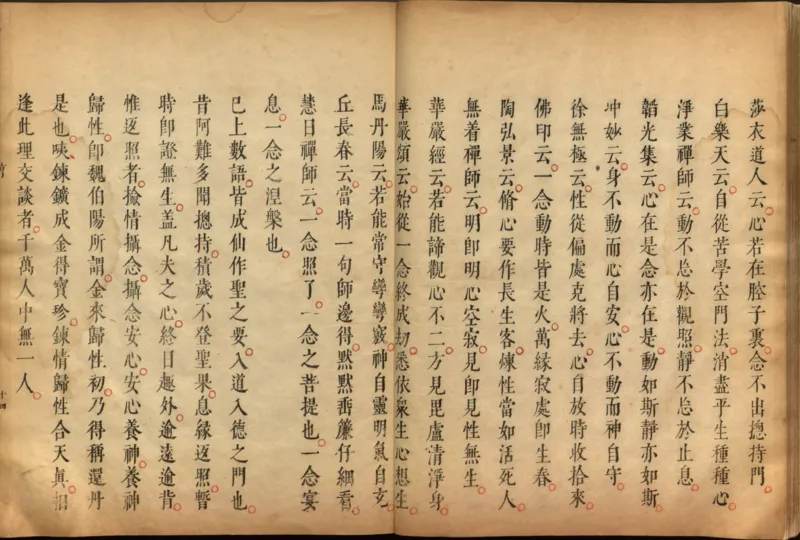 莎衣道人云。心若在腔子裏。念不出摠持門。
白樂天云。自從苦學空門法。消盡平生種種心。
淨業禪師云。動不忘於觀照。靜不忘於止息。
韜光集云。心在是念亦在是。動如斯靜亦如斯。
冲妙云。身不動而心自安。心不動而神自守。
徐無極云。性從偏處克將去。心自放時收拾來。
佛印云。一念動時皆是火。萬緣寂處即生春。
陶弘景云。脩心要作長生客。煉性當如活死人。
無着禪師云。明即明心空寂。見即見性無生。
華嚴經云。若能諦觀心不二。方見毘盧清淨身。
華嚴頌云。始從一念終成劫。悉依衆生心想生。
馬丹陽云。若能常守彎彎竅。神自靈明氣自玄。
丘長春云。當時一句師邊得。默默垂簾仔細看。
慧日禪師云。一念照了。一念之菩提也。一念宴
息。一念之涅槃也。
已上數語。皆成仙作聖之要。入道入德之門也。
昔阿難多聞摠持。積歲不登聖果。息緣返照。暫
時即證無生。盖凡夫之心。終日趣外。逾遠逾背。
惟返照者。撿情攝念。攝念安心。安心養神。養神
歸性。即魏伯陽所謂。金來歸性初。乃得稱還丹
是也。咦。鍊鑛成金得寶珍。鍊情歸性合天眞。相
逢此理交談者。千萬人中無一人。
十四